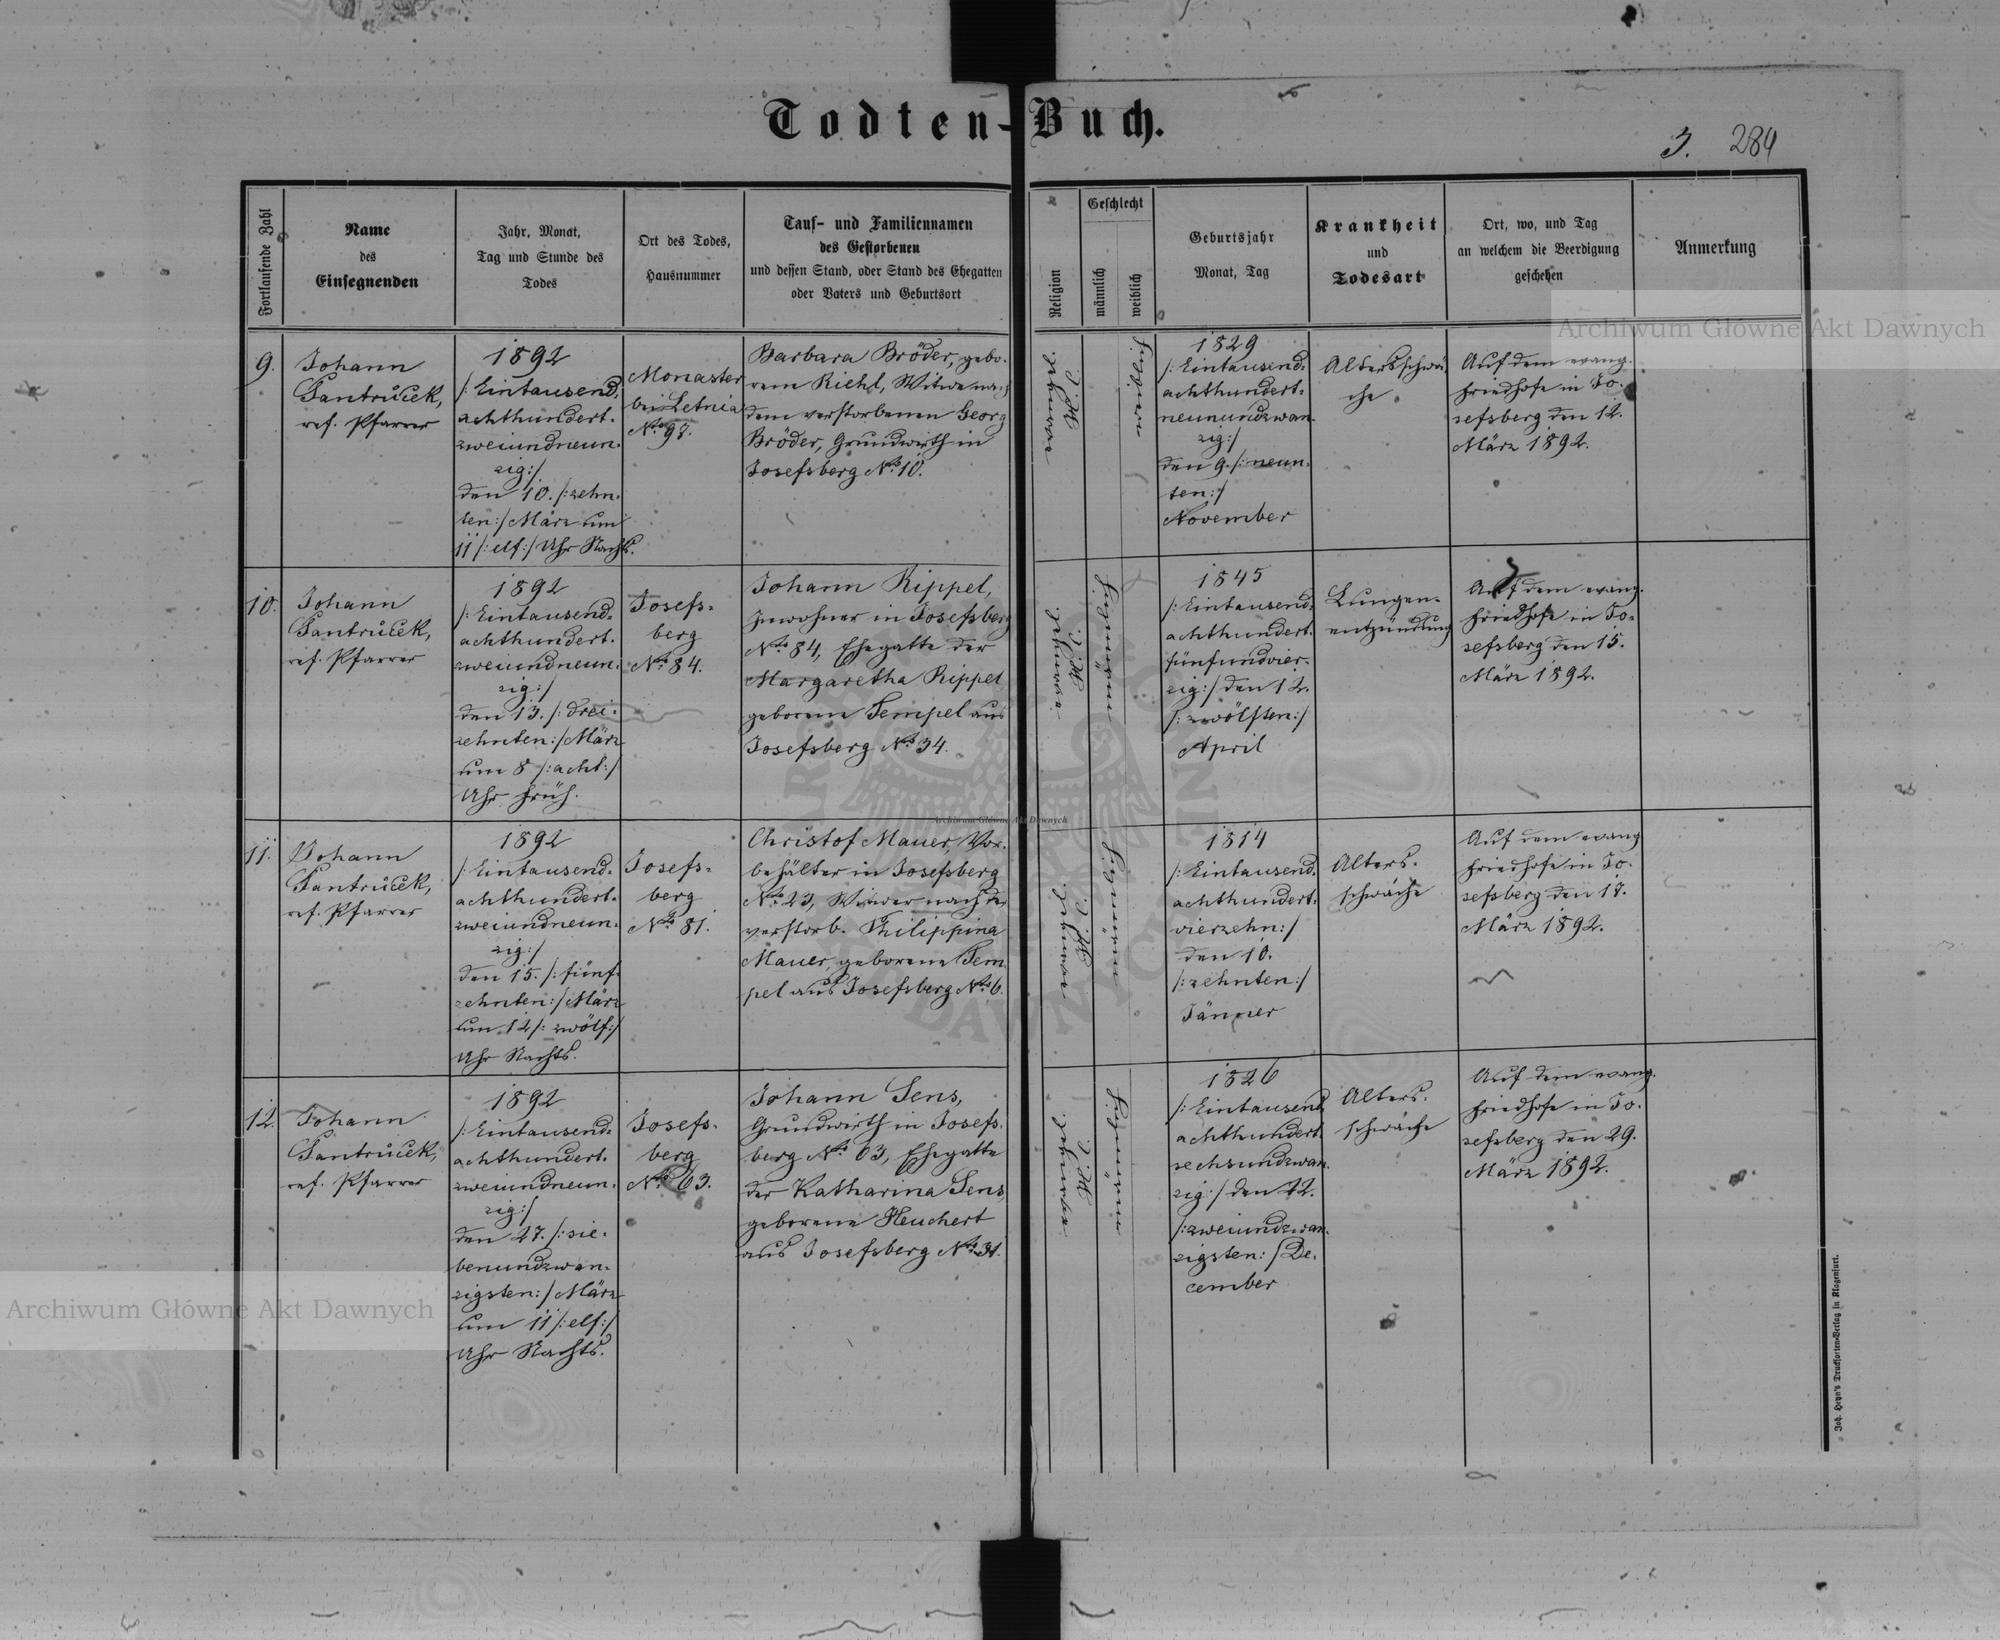 Todten-Buch.
3. 284
Fortlaufende Zahl
Name
des
Einsegnenden
Jahr, Monat,
Tag und Stunde des
Todes
Ort des Todes,
Hausnummer
Tauf- und Familiennamen
des Gestorbenen
und dessen Stand, oder Stand des Ehegatten
oder Vaters und Geburtsort
Religion
Geschlecht
männlich
weiblich
Geburtsjahr
Monat, Tag
Krankheit
und
Todesart
Ort, wo, und Tag
an welchem die Beerdigung
geschehen
Anmerkung
9.
Johann
Pantrůček,
ref. Pfarrer
1892
/:Eintausend-
achthundert-
zweiundneun-
zig:/
den 10. /:zehn-
ten:/ März um
11 /:elf:/ Uhr Nachts.
Monaster
bei Letnia
No. 97.
Barbara Bröder, gebo-
rene Riehl, Witwe nach
dem verstorbenen Georg
Bröder, Grundwirth in
Josefsberg No. 10.
1829
/:Eintausend-
achthundert-
neunundzwan-
zig:/
den 9. /:neun-
ten:/
November
Altersschwä-
che
Auf dem evang.
Friedhofe in Jo-
sefsberg den 12.
März 1892.
10.
Johann
Pantrůček,
ref. Pfarrer
1892
/:Eintausend-
achthundert-
zweiundneun-
zig:/
den 13. /:drei-
zehnten:/ März
um 8 /:acht:/
Uhr früh.
Josefs-
berg
No. 84.
Johann Rippel,
Inwohner in Josefsberg
No. 84, Ehegatte der
Margaretha Rippel
geborene Tempel aus
Josefsberg No. 34.
1845
/:Eintausend-
achthundert-
fünfundvier-
zig:/ den 12.
/:zwölften:/
April
Lungen-
entzündung
Auf dem evang.
Friedhofe in Jo-
sefsberg den 15.
März 1892.
11.
Johann
Pantrůček,
ref. Pfarrer
1892
/:Eintausend-
achthundert-
zweiundneun-
zig:/
den 15. /:fünf-
zehnten:/ März
um 12 /:zwölf:/
Uhr Nachts.
Josefs-
berg
No. 81.
Christof Mauer, Vor-
behälter in Josefsberg
No. 23, Witwer nach der
verstorb. Philippina
Mauer, geborene Tem-
pel aus Josefsberg No. 6.
1814
/:Eintausend-
achthundert-
vierzehn:/
den 10.
/:zehnten:/
Jänner
Alters-
schwäche
Auf dem evang.
Friedhofe in Jo-
sefsberg den 17.
März 1892.
12.
Johann
Pantrůček,
ref. Pfarrer
1892
/:Eintausend-
achthundert-
zweiundneun-
zig:/
den 27. /:sie-
benundzwan-
zigsten:/ März
um 11 /:elf:/
Uhr Nachts.
Josefs-
berg
No. 63.
Johann Sens,
Grundwirth in Josefs-
berg No. 63, Ehegatte
der Katharina Sens,
geborene Heuchert
aus Josefsberg No. 31.
1826
/:Eintausend
achthundert-
sechsundzwan-
zig:/ den 22.
/:zweiundzwan-
zigsten:/ De-
cember
Alters-
schwäche
Auf dem evang.
Friedhofe in Jo-
sefsberg den 29.
März 1892.
Joh. Heyn's Drucksorten-Verlag in Klagenfurt.
Archiwum Główne Akt Dawnych
Archiwum Główne Akt Dawnych
Archiwum Główne Akt Dawnych